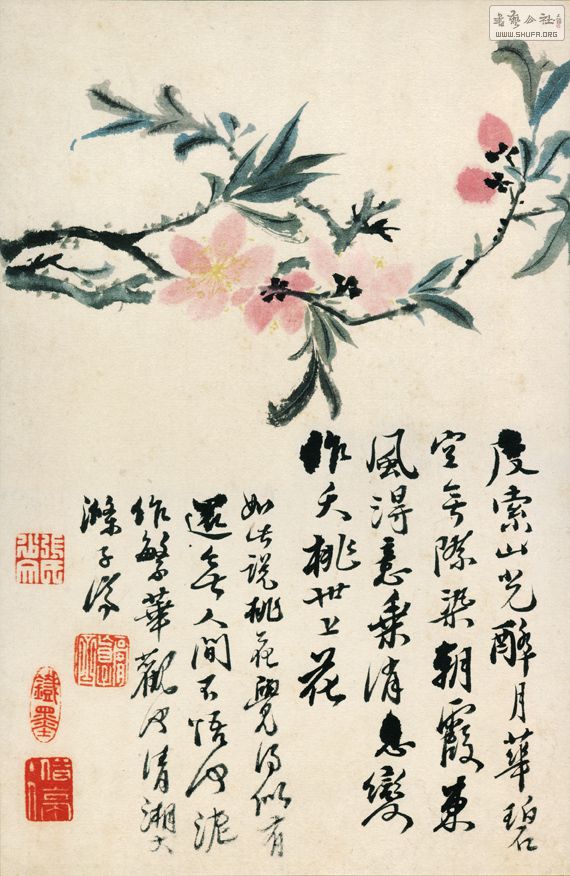 書藝公社
WWW.SHUFA.ORG
度索山光醉月華碧
空無際染朝霞東
風得意乘消息變
作夭桃世上花
如此說桃花覺得似有
還無人間不悟何泥
作繁華觀也清湘大
滌子濟